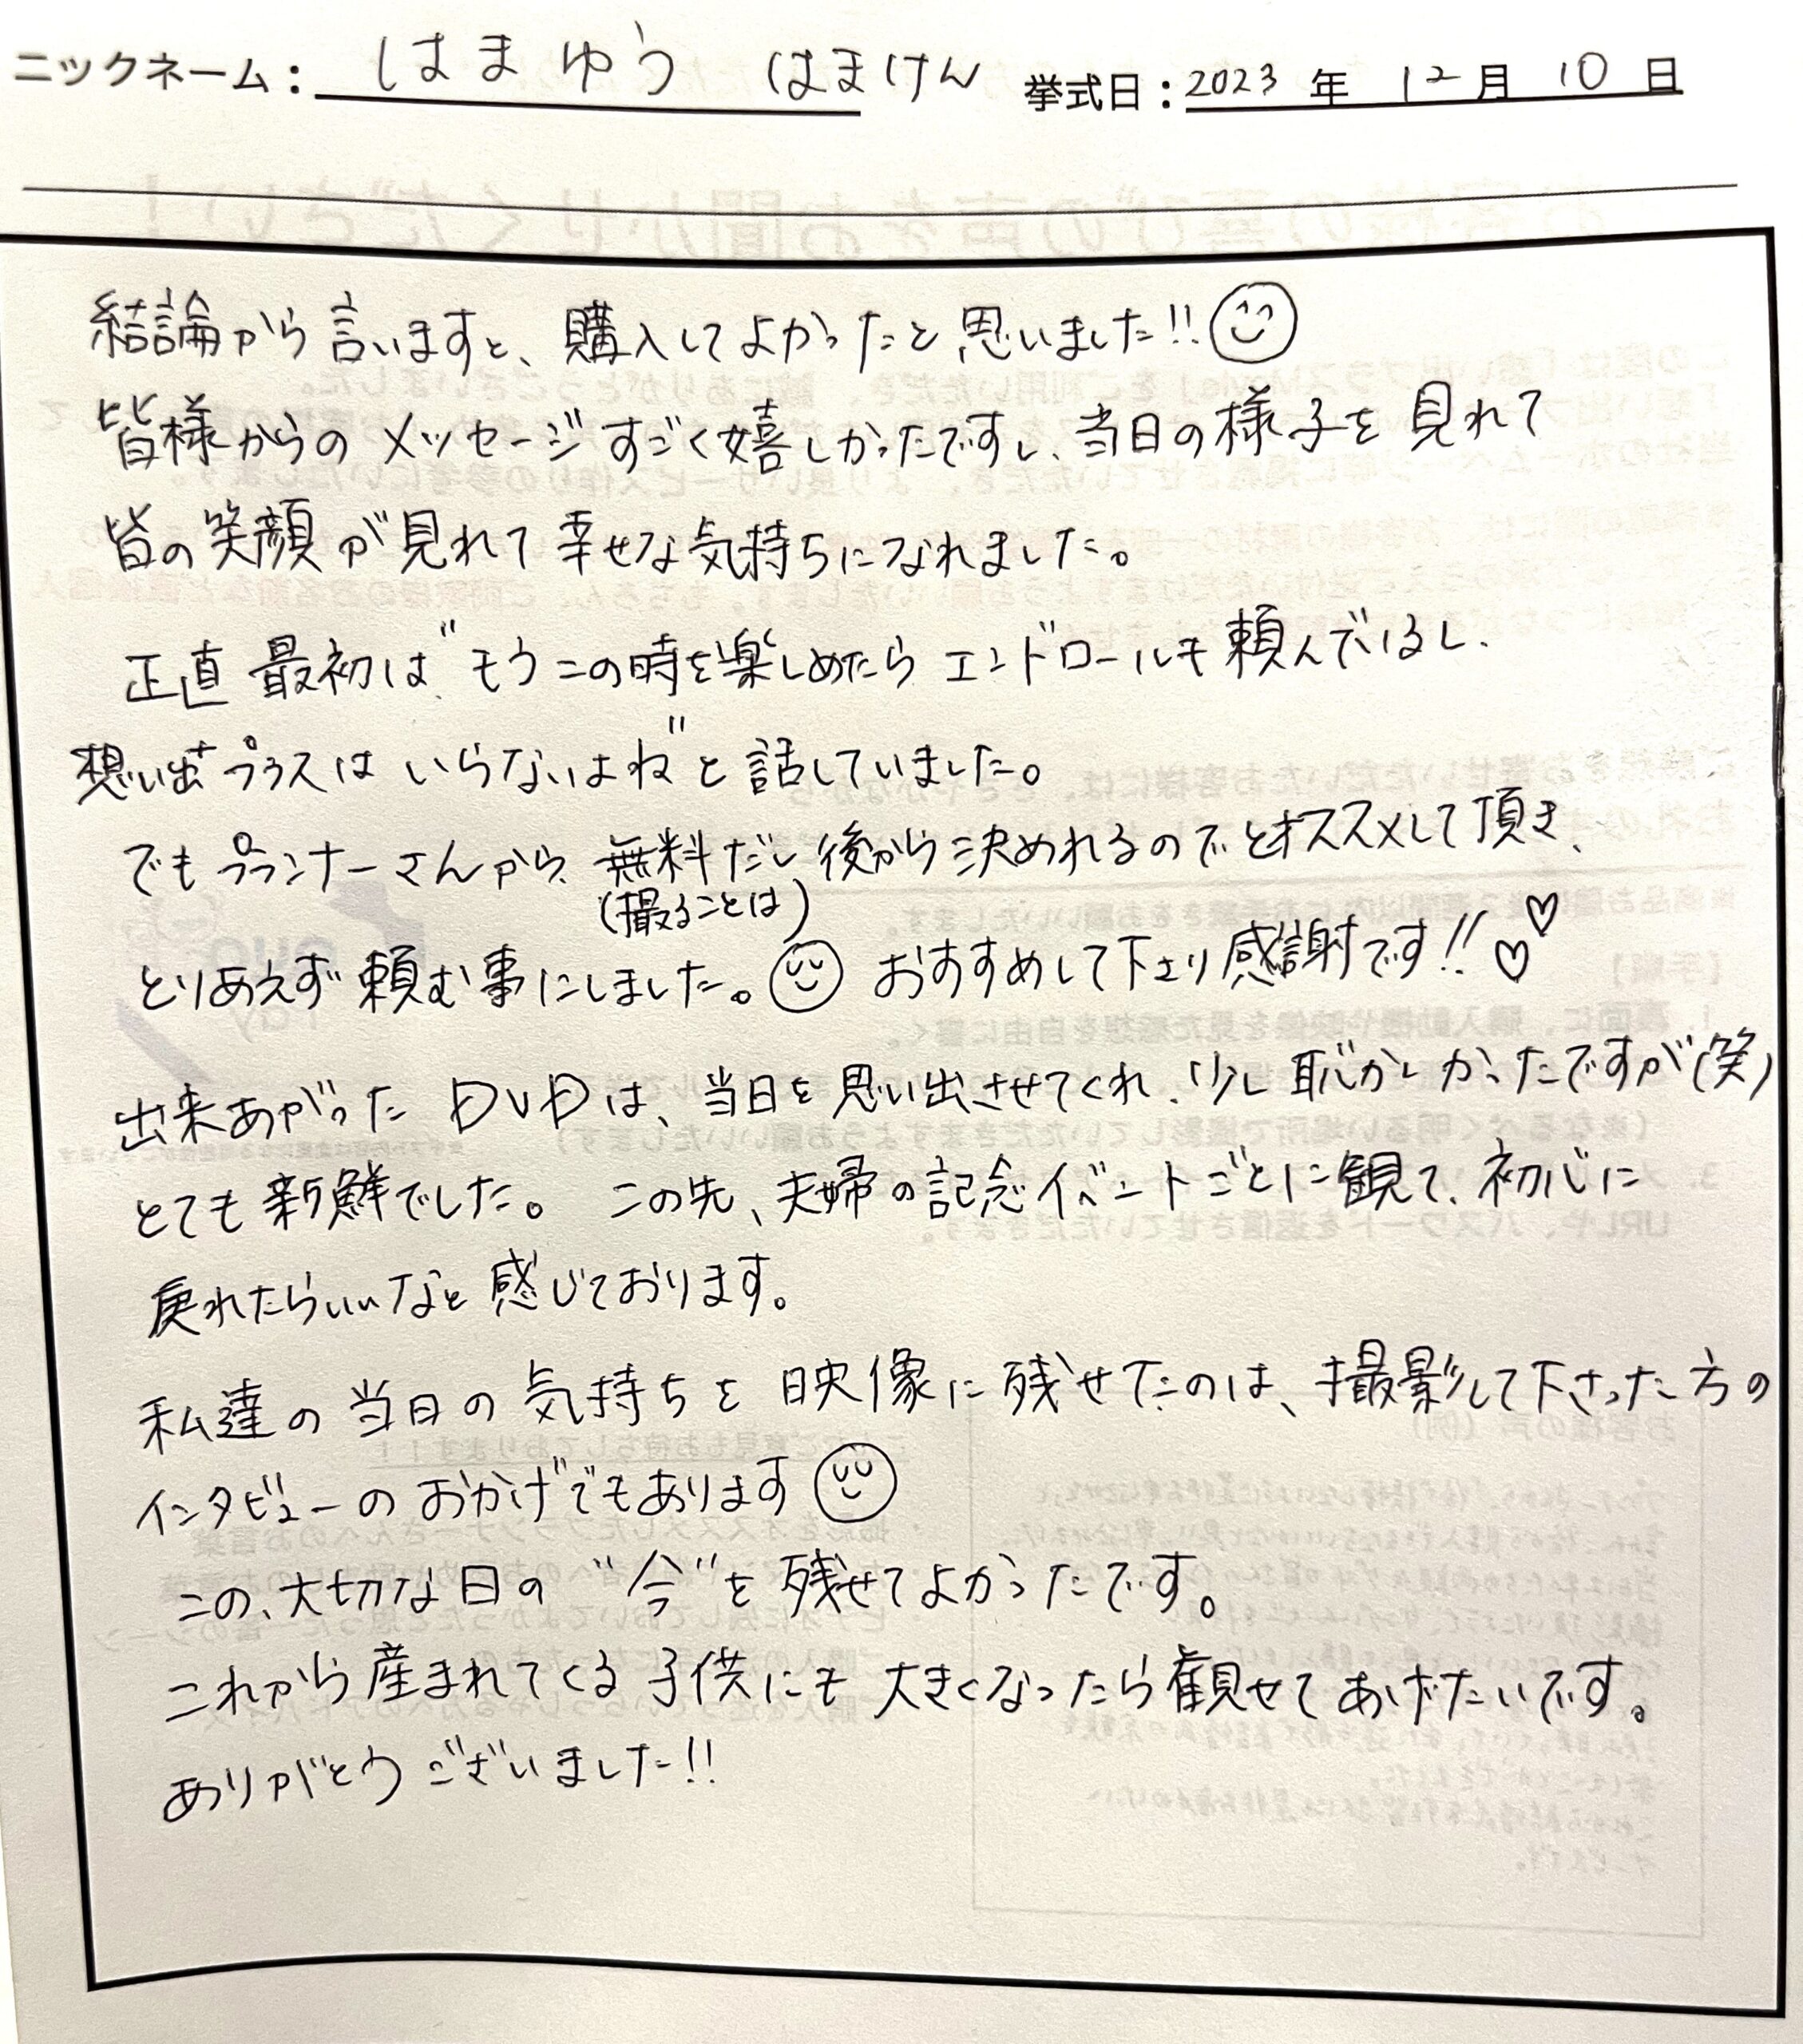 ニックネーム： はまゆう はまけん 挙式日：2023 年 12 月 10 日
結論から言いますと、購入してよかったと思いました!!
皆様からのメッセージすごく嬉しかったですし、当日の様子を見れて
皆の笑顔が見れて幸せな気持ちになれました。
正直最初は"もうこの時を楽しめたらエンドロールも頼んでいるし、
想い出プラスはいらないよね"と話していました。
でもプランナーさんから、無料だし後から決めれるのでとオススメして頂き、
(撮ることは)
とりあえず頼む事にしました。 おすすめして下さり感謝です!!♡♡
出来あがったDVDは、当日を思い出させてくれ、少し恥かしかったですが(笑)
とても新鮮でした。この先、夫婦の記念イベントごとに観て、初心に
戻れたらいいなと感じております。
私達の当日の気持ちを映像に残せてたのは、撮影して下さった方の
インタビューのおかげでもあります
この、大切な日の"今"を残せてよかったです。
これから産まれてくる子供にも大きくなったら観せてあげたいです。
ありがとうございました!!